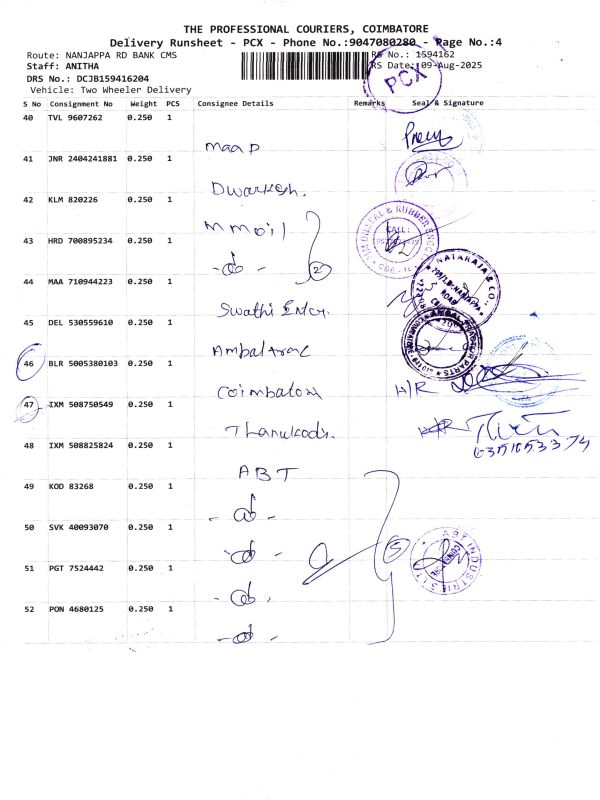 THE PROFESSIONAL COURIERS, COIMBATORE
Delivery Runsheet - PCX - Phone No.:9047080280 - Page No.:4
Route: NANJAPPA RD BANK CMS
RS No.: 1594162
Staff: ANITHA
RS Date: 09-Aug-2025
DRS No.: DCJB159416204
PCX
Vehicle: Two Wheeler Delivery
S No Consignment No Weight PCS Consignee Details Remarks Seal & Signature
40 TVL 9607262 0.250 1
Maap
Prem
41 JNR 2404241881 0.250 1
Dwarkesh.
42 KLM 820226 0.250 1
mmoil
43 HRD 700895234 0.250 1
- do - 2
44 MAA 710944223 0.250 1
Swathi Enter.
NATARAJA & CO.
45 DEL 530559610 0.250 1
Ambal trac
46 BLR 5005380103 0.250 1
Coimbatore H/R
47 IXM 508750549 0.250 1
Thanukodi.
48 IXM 508825824 0.250 1
ABT
49 KOD 83268 0.250 1
- do -
50 SVK 40093070 0.250 1
- do - 5
ABT INDUSTRIES LT
51 PGT 7524442 0.250 1
- do -
52 PON 4680125 0.250 1
- do -